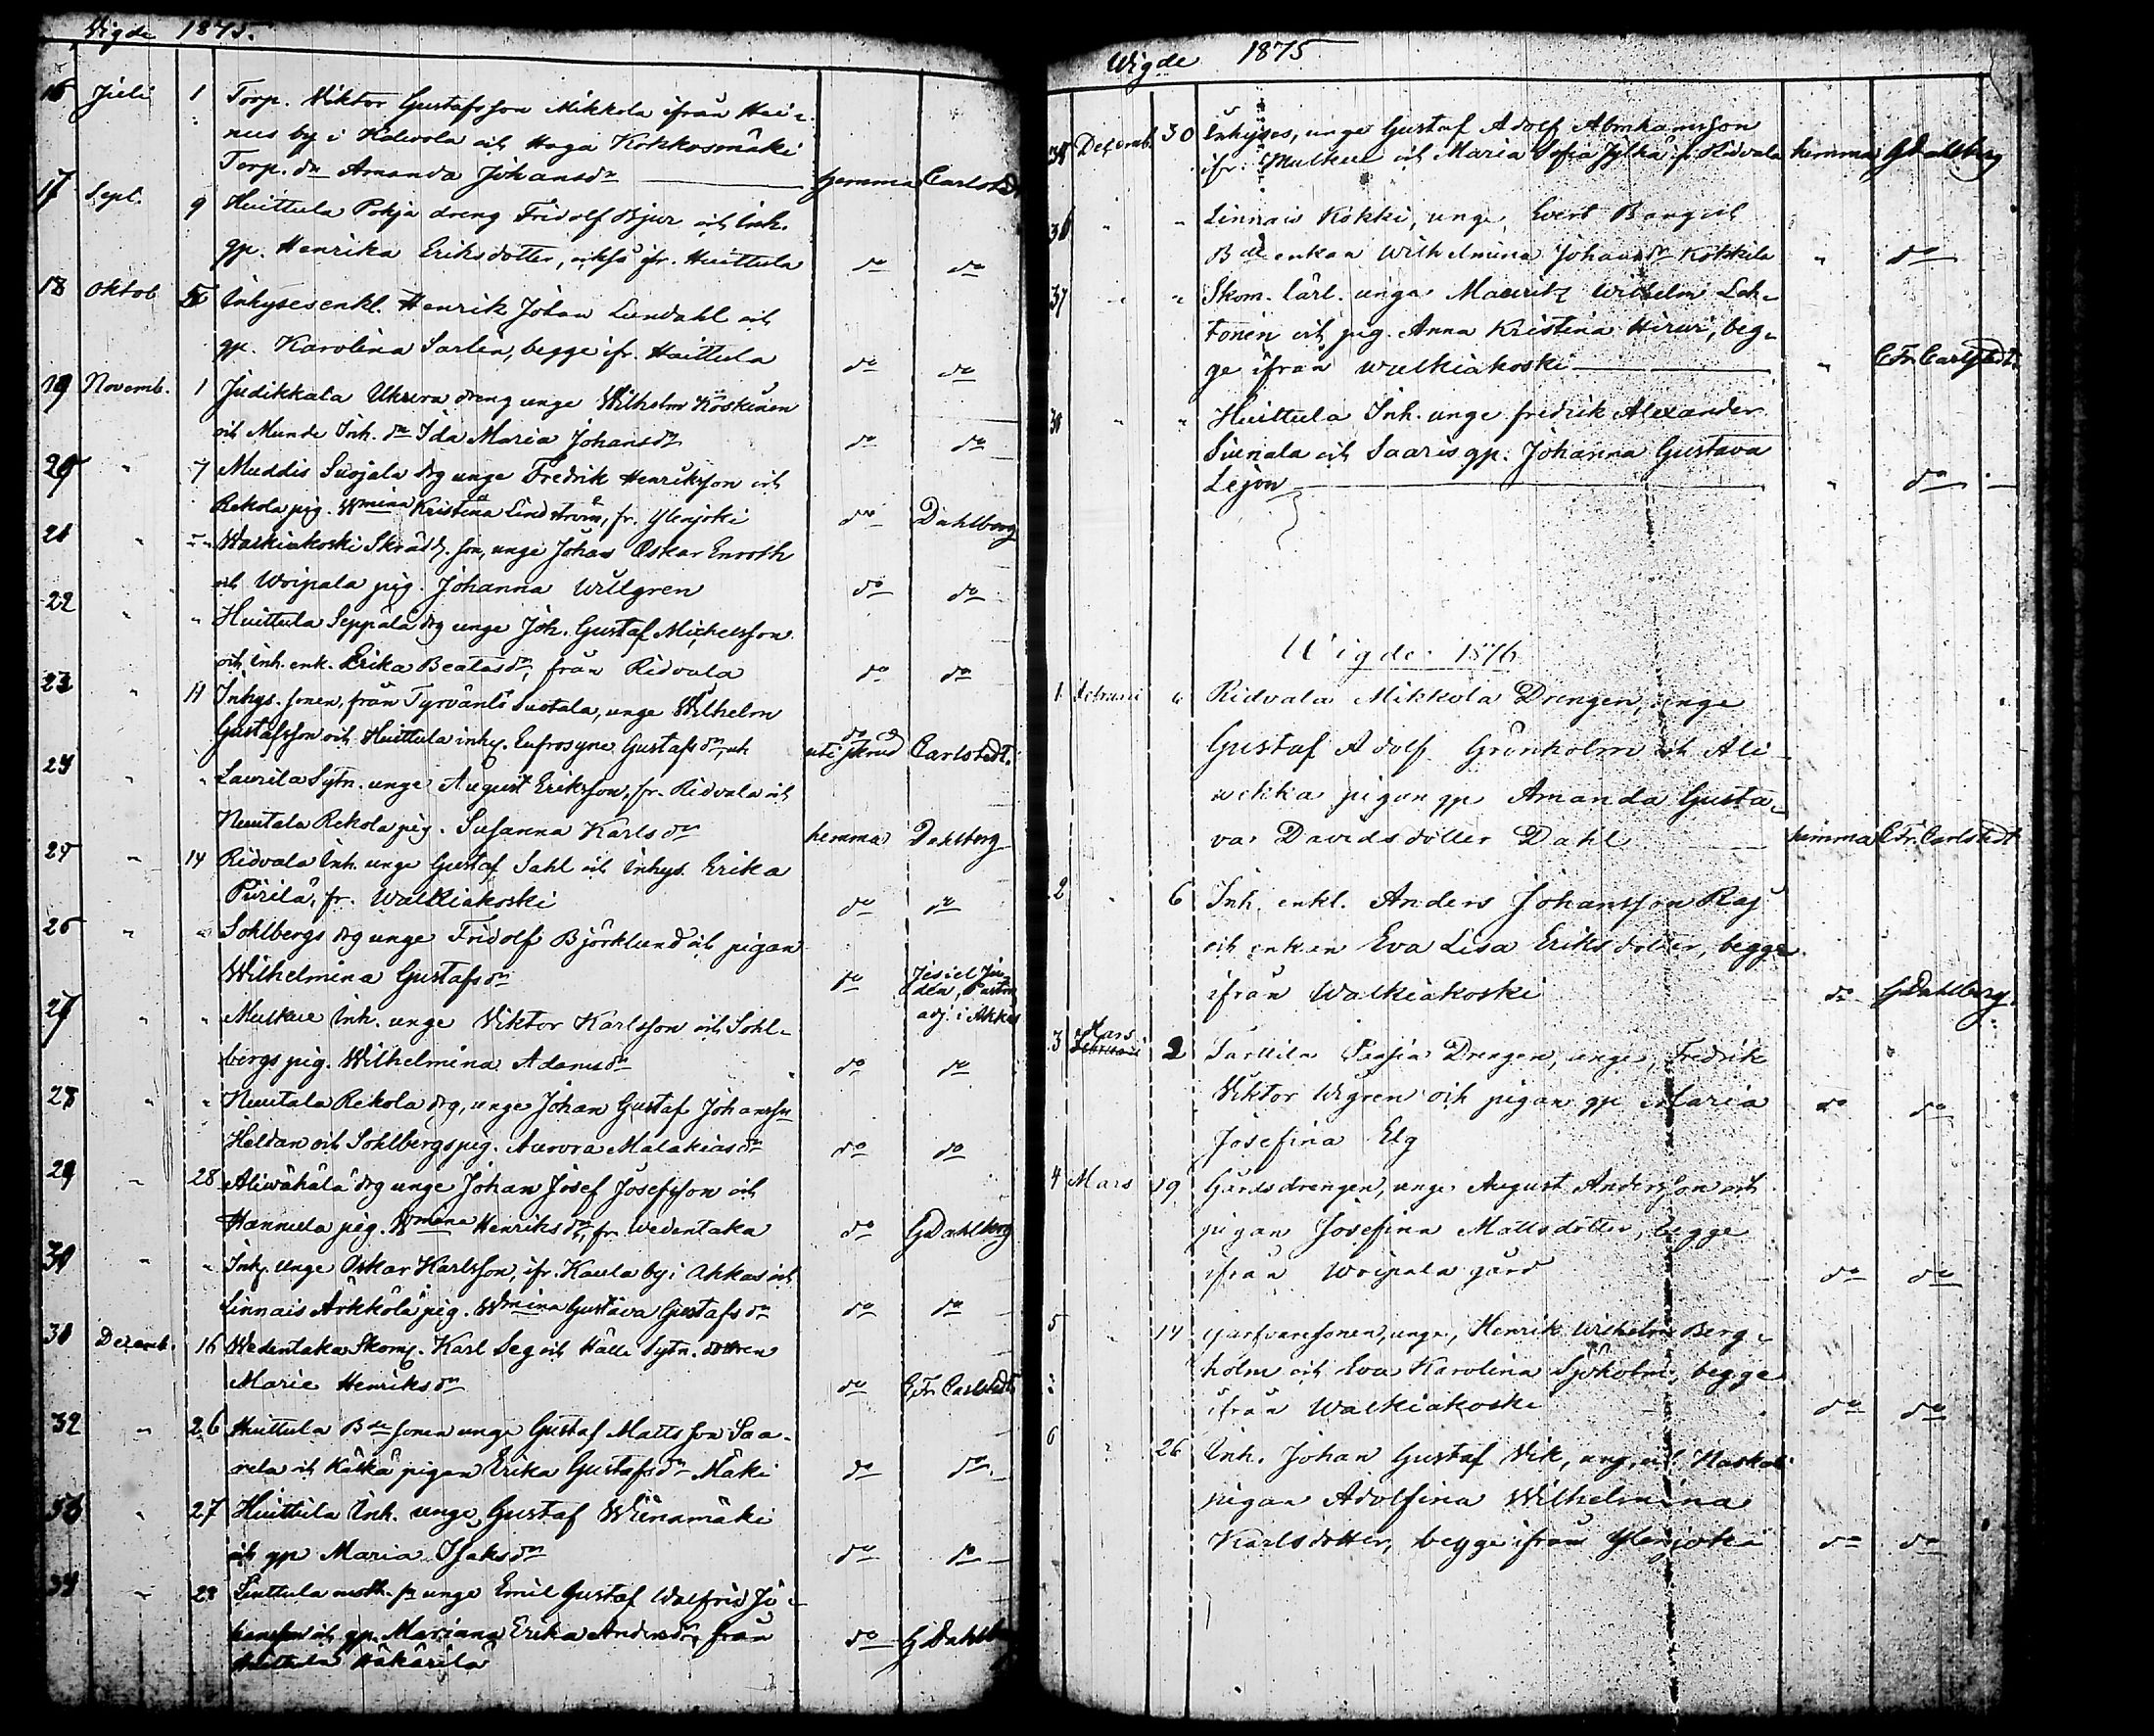 Vigde 1875.
16 Juli 1 Torp. Viktor Gustafsson Mikkola ifrån Hei-
nus by i Kalvola och Haga Kokkosmäki
Torp. dr Amanda Johansdr hemma Carlstedt
17 Sept. 9 Huittula Pohja dreng Fridolf Bjur och Inh.
gp. Henrika Eriksdotter, också fr. Huittula do do
18 Oktob 5 Inhysesenkl. Henrik Johan Lundahl och
gp. Karolina Sarlin, begge fr. Huittula do do
19 Novemb. 1 Judikkala Uhrera dreng unge Wilhelm Koskinen
och Munde Inh. dr Ida Maria Johansdr do do
20 " 7 Muddis Suojala drg unge Fredrik Henriksson och
Rekola pig. Wmina Kristina Lindström, fr. Ylenjoki do Dahlberg
21 " " Walkiakoski Skrädd. son, unge Johan Oskar Enroth
och Woipala pig. Johanna Willgren do do
22 " " Huittula Seppälä drg unge Joh. Gustaf Michelsson
och Inh. enk. Erika Beatasdr, från Ridvala do do
23 " 11 Inhys. sonen, från Tyrväntö Suotala, unge Wilhelm
Gustafsson och Huittula inhy. Eufrosyne Gustafsdr, do Carlstedt.
24 " " Laurila Sytn. unge August Eriksson, fr. Ridvala och
Nuutala Rekola pig. Susanna Karlsdr hemma Dahlberg
25 " 14 Ridvala Inh. unge Gustaf Sahl och Inhys. Erika
Piirilä, fr. Walkiakoski do do
26 " " Sohlbergs drg unge Fridolf Björklund och pigan
Wilhelmina Gustafsdr do
adj. i Akkas
27 " " Mulkue Inh. unge Viktor Karlsson och Sohl-
bergs pig. Wilhelmina Adamsdr do do
28 " " Nuutala Rekola drg, unge Johan Gustaf Johansson
Heldan och Sohlbergs pig. Aurora Malakiasdr do do
29 " 28 Aliwähälä drg unge Johan Josef Josefsson och
Hannula pig. Wmina Henriksdr, fr. Wedentaka do G Dahlberg
30 " " Inhy. unge Oskar Karlsson, ifr. Kaula by i Akkas och
Linnais Arkkola pig. Wmina Gustava Gustafsdr do do
31 Dezemb. 16 Wedentaka Skom. Karl Seg och Källe Sytn. dottren
Marie Henriksdr do C Fr. Carlstedt
32 " 26 Huittula Bde sonen unge Gustaf Mattsson Saa-
rela och Kätkä pigan Erika Gustafsdr Mäki do do
33 " 27 Huittula Inh. unge Gustaf Wiinamäki
och gp Maria Isaksdr do do
34 " 28 unge Emil Gustaf Walfrid Jo-
hansson och gp. Mariana Erika Andersdr, från do G Dahlberg
Huittula Häkärilä
Wigde 1875
35 Dezemb. 30 Inhyses, unge Gustaf Adolf Abrahamsson
ifr. Mulkue och Maria Sofia Jylhä fr. Ridvala hemma G Dahlberg
36 " " Linnais Kokki, unge, Evert Bang och
Bde enkan Wilhelmina Johansdr Kokkila " do
37 " " Skom. lärl. unge Mauritz Wilhelm Leh-
tonen och pig. Anna Kristina Hirwi, beg-
ge ifrån Walkiakoski " C Fr. Carlstedt
38 " " Huittula Inh. unge Fredrik Alexander
Siienala och Saaris gp. Johanna Gustava
Lejon " do
Wigde 1876
1 Februari 6 Ridvala Mikkola Drengen, unge
Gustaf Adolf Grönholm och Ali-
wekka pigan gp. Amanda Gusta-
va Davidsdotter Dahl hemma C Fr. Carlstedt
2 " 6 Inh. enkl. Anders Johansson Raj
och enkan Eva Lisa Eriksdotter, begge
ifrån Walkiakoski do G Dahlberg
3 Mars 2 Sarttila Drengen, unge, Fredrik
Viktor Wigren och pigan gp Maria do do
Josefina Elg
4 Mars 19 Gårdsdrengen, unge August Andersson och
pigan Josefina Mattsdotter, begge
ifrån Woipala gård do do
5 14 Garfvaresonen, unge, Henrik Wilhelm Berg-
holm och Eva Karolina Sjöholm, begge
ifrån Walkiakoski do do
6 " 26 Inh. Johan Gustaf Vik, ung, och
pigan Adolfina Wilhelmina
Karlsdotter, begge ifrån Ylenjoki do do